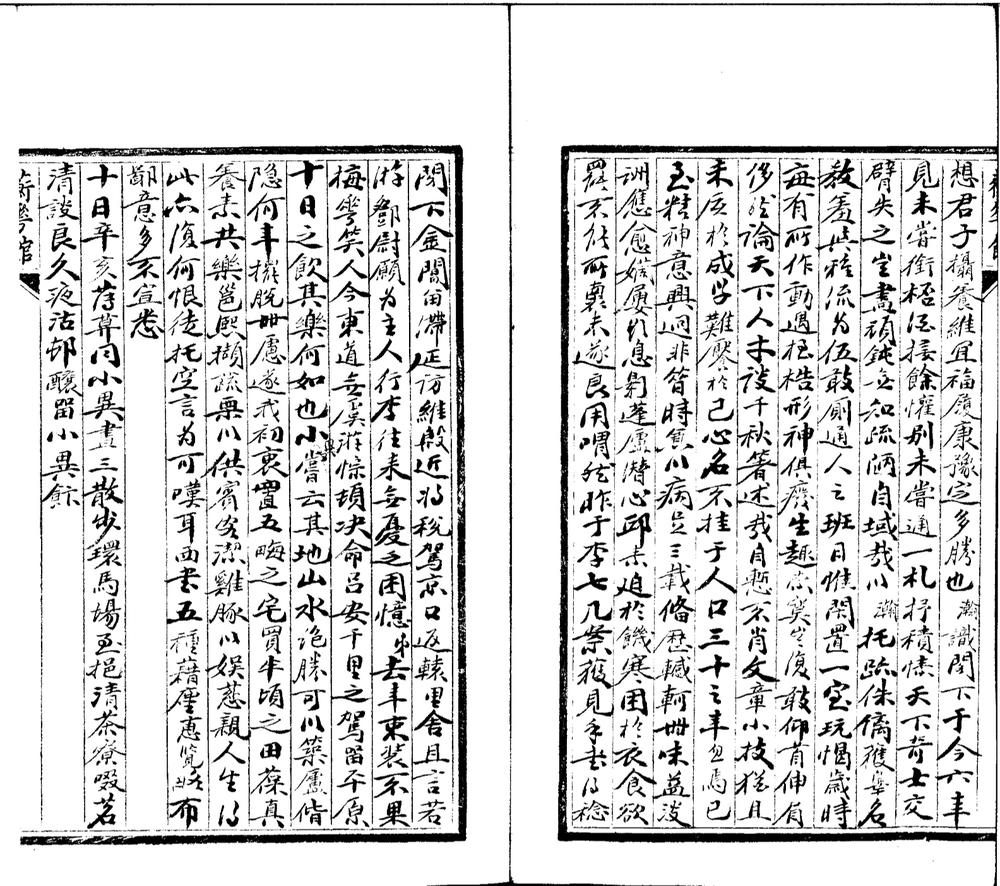 想君子攝養維宜福履康豫定多勝也瀚識閣下于今六年
見未嘗銜桮酒接餘懽別未嘗通一札抒積愫天下奇士交
臂失之豈盡頑鈍無知疏陋自域哉以瀚托跡侏僑獲辜名
教羞與穢流為伍敢廁通人之班日惟閑置一室玩愒歲時
每有所作動遇桎梏形神俱廢生趣索莫豈復敢仰首伸眉
侈然論天下人才談千秋著述哉自慙不肖文章小技猶且
未底於成學難壓於己心名不挂于人口三十之年忽焉已
至精神意興迥非昔時負以病足三載備歷轗軻世味益淡
訓應愈嬾屢欲息影蓬廬潛心邱素迫於饑寒困於衣食欲
罷不能所裏未遂良用喟然昨于李七几案獲見手書得稔
閣下金閶留滯延訪維殷近將稅駕京口返轅里舍且言若
游鄧尉願為主人行李往來無憂乏困憶弟去年束裝不果
梅花笑人今東道無虞游悰頓決命呂安千里之駕留平原
十日之飲其樂何如也小異嘗云其地山水絕勝可以築廬偕
隱何年擺脫世慮遂我初衷置五畮之宅買半頃之田葆真
養素共樂邕熙擷蔬栗以供賓客潔雞豚以娛慈親人生得
此亦復何恨徒托空言為可嘆耳西書五種藉塵惠覽略布
鄙意多不宣悉
十日辛亥薄暮同小異晝三散步環馬場至挹清茶寮啜茗
清談良久夜沽邨釀留小異飲
蘅華館